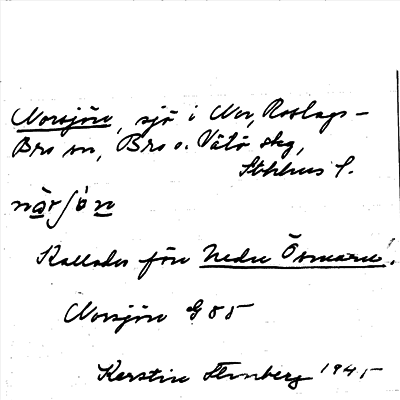 Norsjön, sjö i Nor, Roslags-
Bro sn, Bro o. Vätö skg,
Sthlms l.
nạrʃön
Kallades förr Nedre Ösmaren.
Norsjön G 55
Kerstin Stenberg 1941